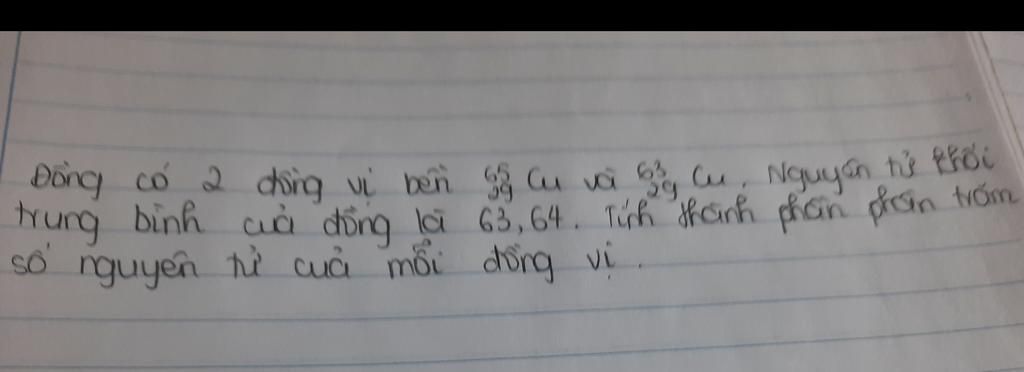 Đồng có 2 đồng vị bền ⁶⁵₂₉Cu và ⁶³₂₉Cu. Nguyên tử khối
trung bình của đồng là 63,64. Tính thành phần phần trăm
số nguyên tử của mỗi đồng vị.